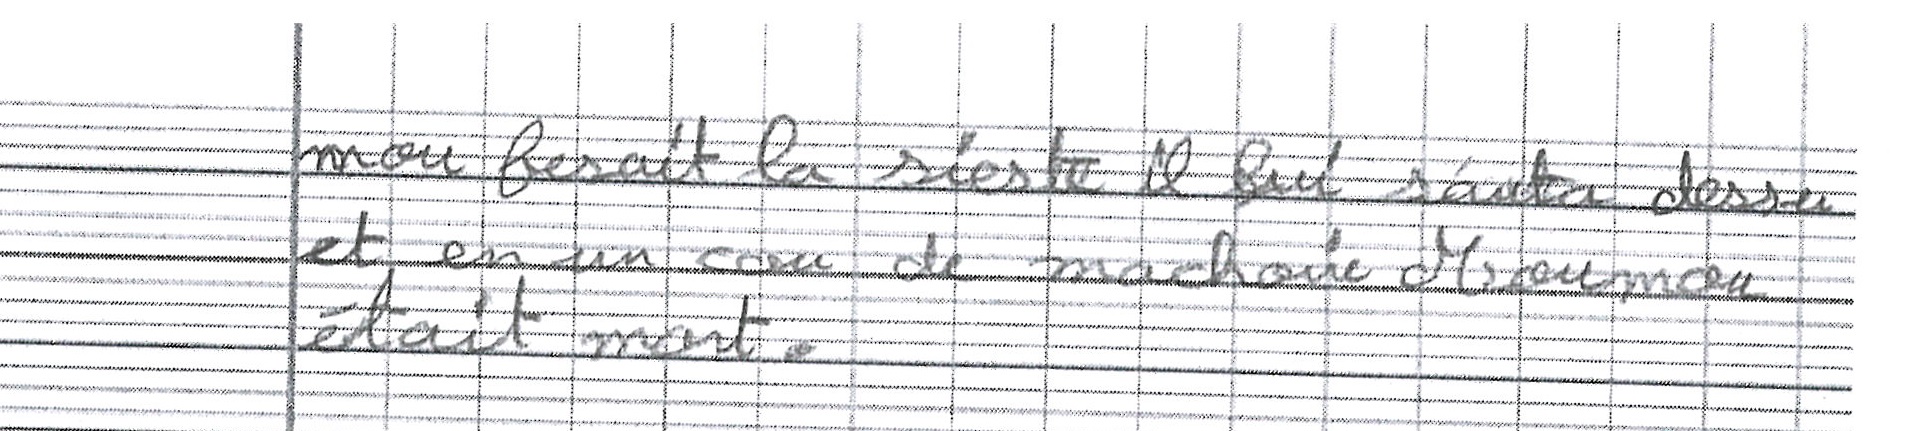 mou fesait la sieste il lui sauta dessu
et en un cou de machoir Mroumou
était mort.